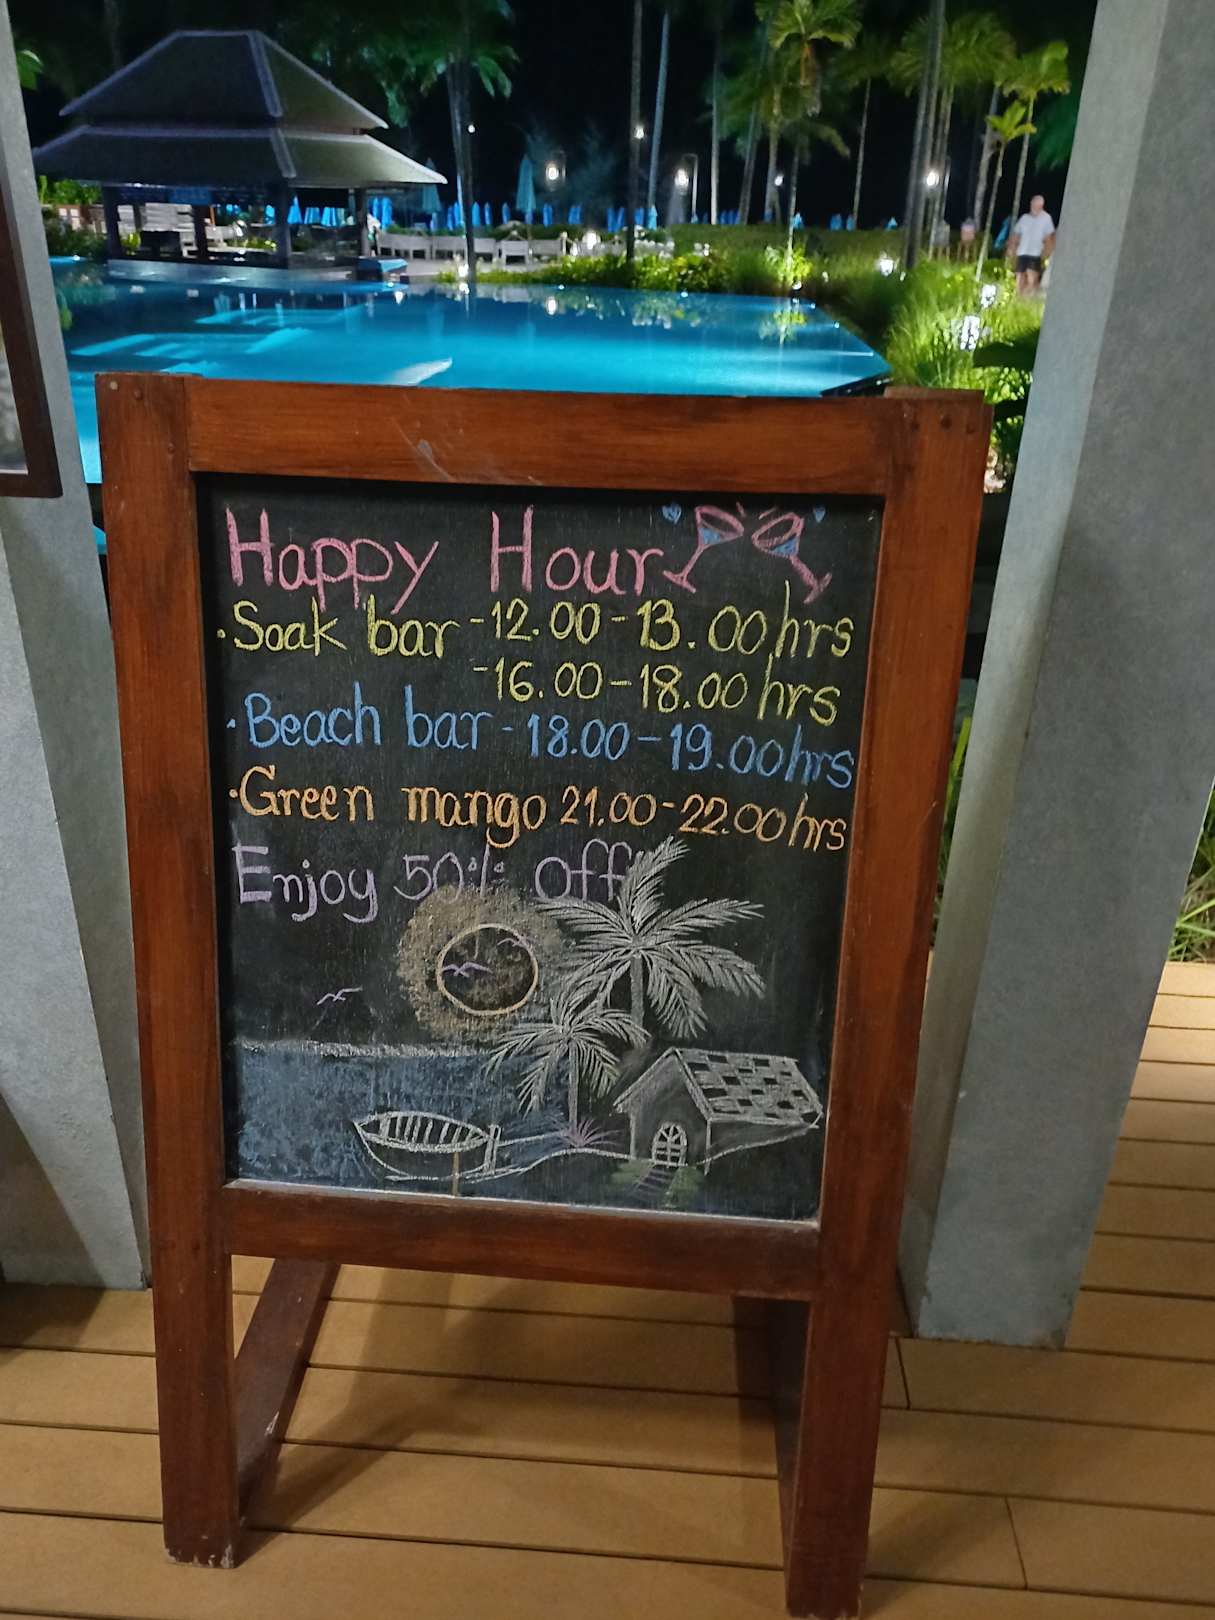 Happy Hour
·Soak bar -12.00-13.00hrs
-16.00-18.00 hrs
·Beach bar -18.00-19.00hrs
·Green mango 21.00-22.00hrs
Enjoy 50% Off